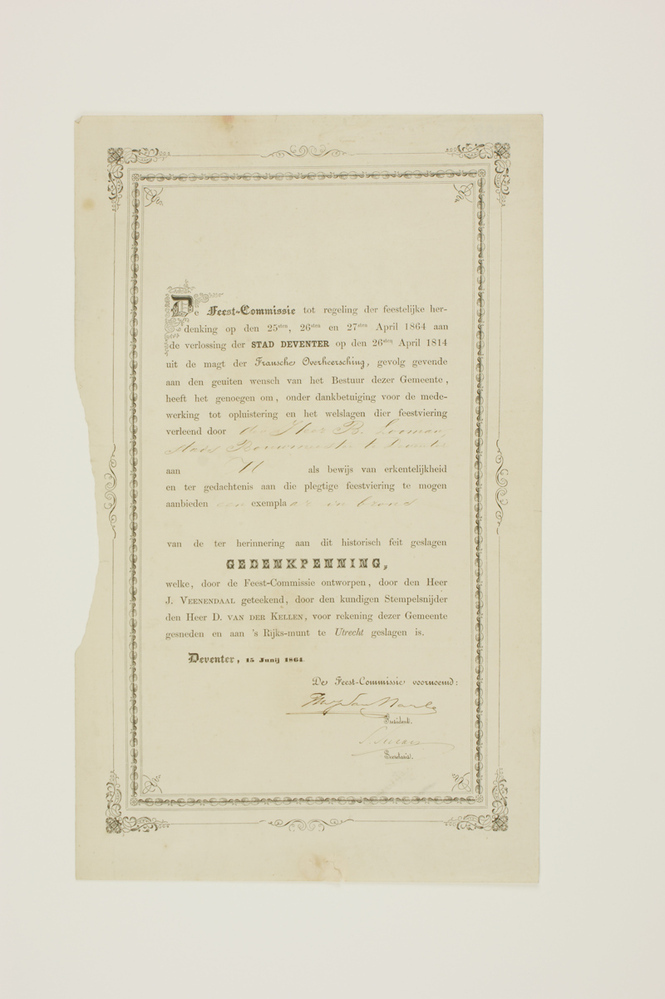 De Feest-Commissie tot regeling der feestelijke her-
denking op den 25sten, 26sten en 27sten April 1864 aan
de verlossing der STAD DEVENTER op den 26sten April 1814
uit de magt der Fransche Overheersching, gevolg gevende
aan den geuiten wensch van het Bestuur dezer Gemeente,
heeft het genoegen om, onder dankbetuiging voor de mede-
werking tot opluistering en het welslagen dier feestviering
verleend door den Heer B. Looman,
Stads
aan als bewijs van erkentelijkheid
en ter gedachtenis aan die plegtige feestviering te mogen
aanbieden een exemplaar in brons
van de ter herinnering aan dit historisch feit geslagen
GEDENKPENNING,
welke, door de Feest-Commissie ontworpen, door den Heer
J. VEENENDAAL geteekend, door den kundigen Stempelsnijder
den Heer D. VAN DER KELLEN, voor rekening dezer Gemeente
gesneden en aan 's Rijks-munt te Utrecht geslagen is.
Deventer, 15 Junij 1864.
De Feest-Commissie voornoemd:
President.
Secretaris.